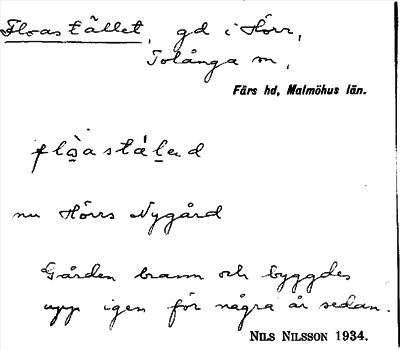 Floastället, gd i Hörr,
Tolånga sn,
Färs hd, Malmöhus län.
nu Hörrs Nygård
Gården brann och byggdes
upp igen för några år sedan.
NILS NILSSON 1934.